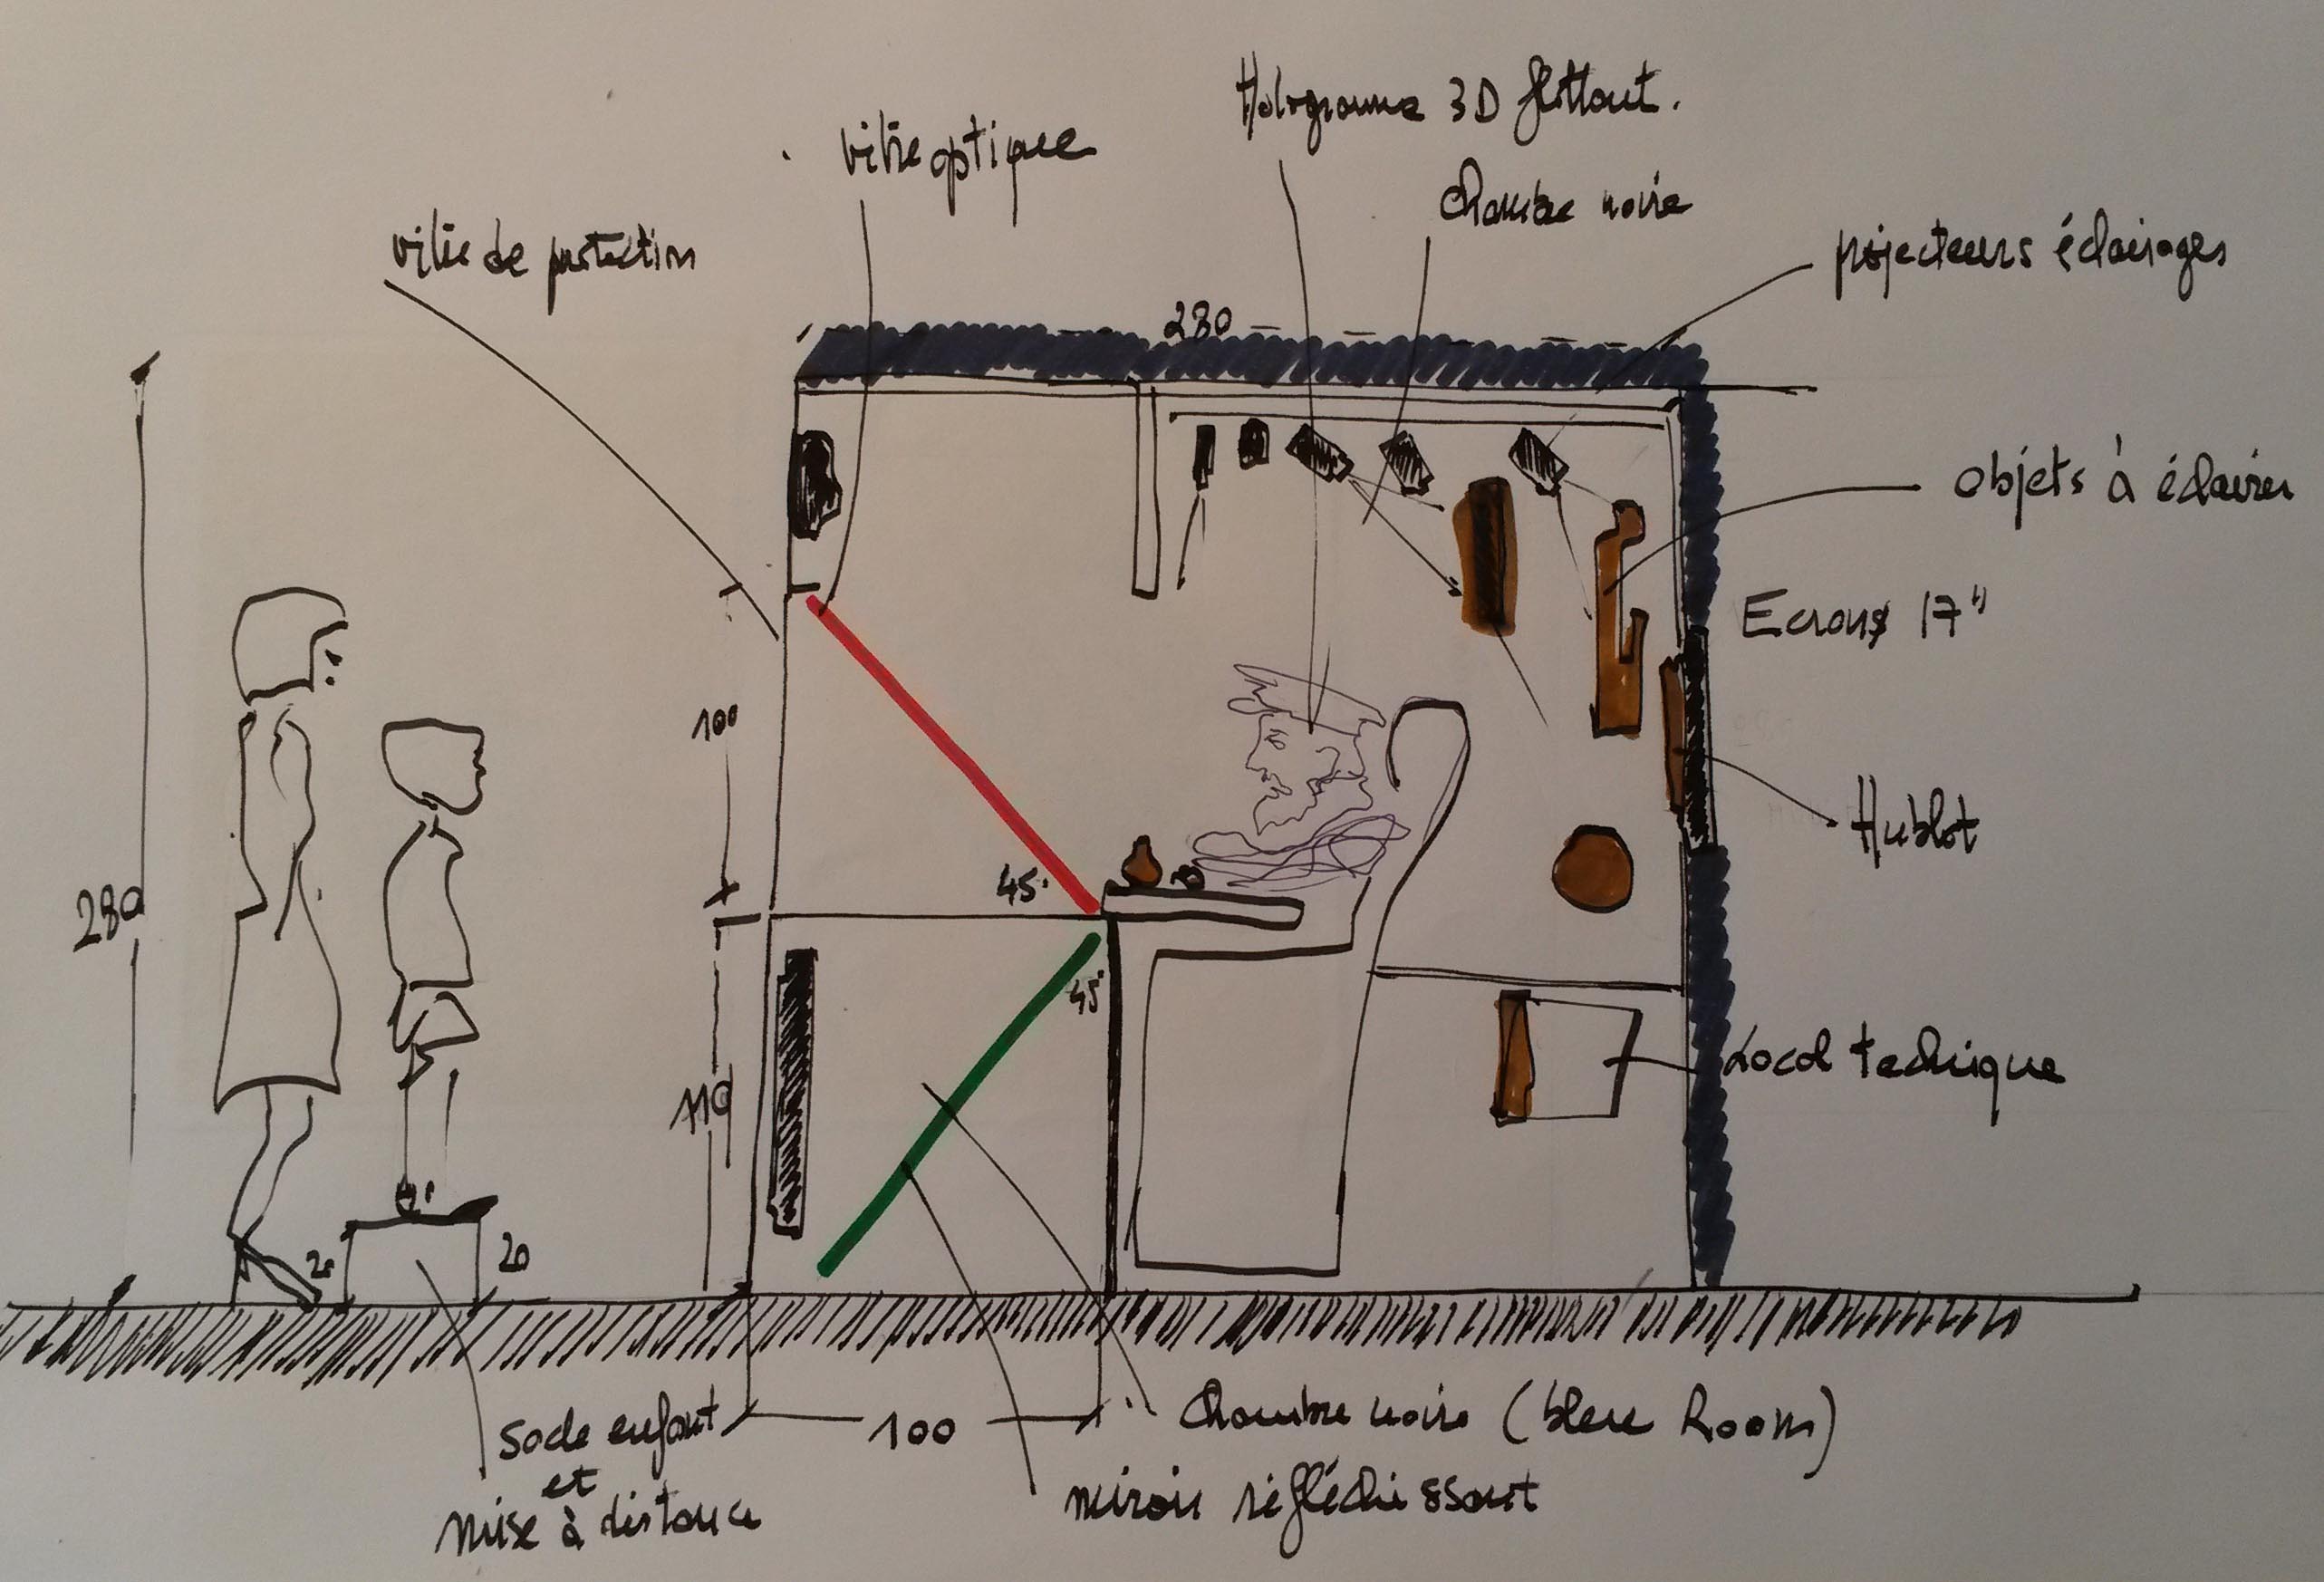 Hologramme 3D flottant.
vitre optique
Chambre noire
vitre de protection
projecteurs éclairages
280
objets à éclairer
Ecrans 17"
100
Hublot
45°
280
45°
110
Local technique
20
20
socle enfant
et
mise à distance
100
Chambre noire (bleue Room)
miroir réfléchissant